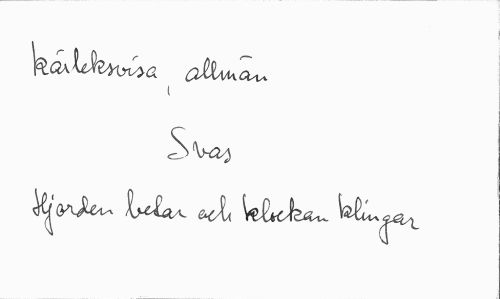 kärleksvisa, allmän
Svas
Hjorden betar och klockan klingar